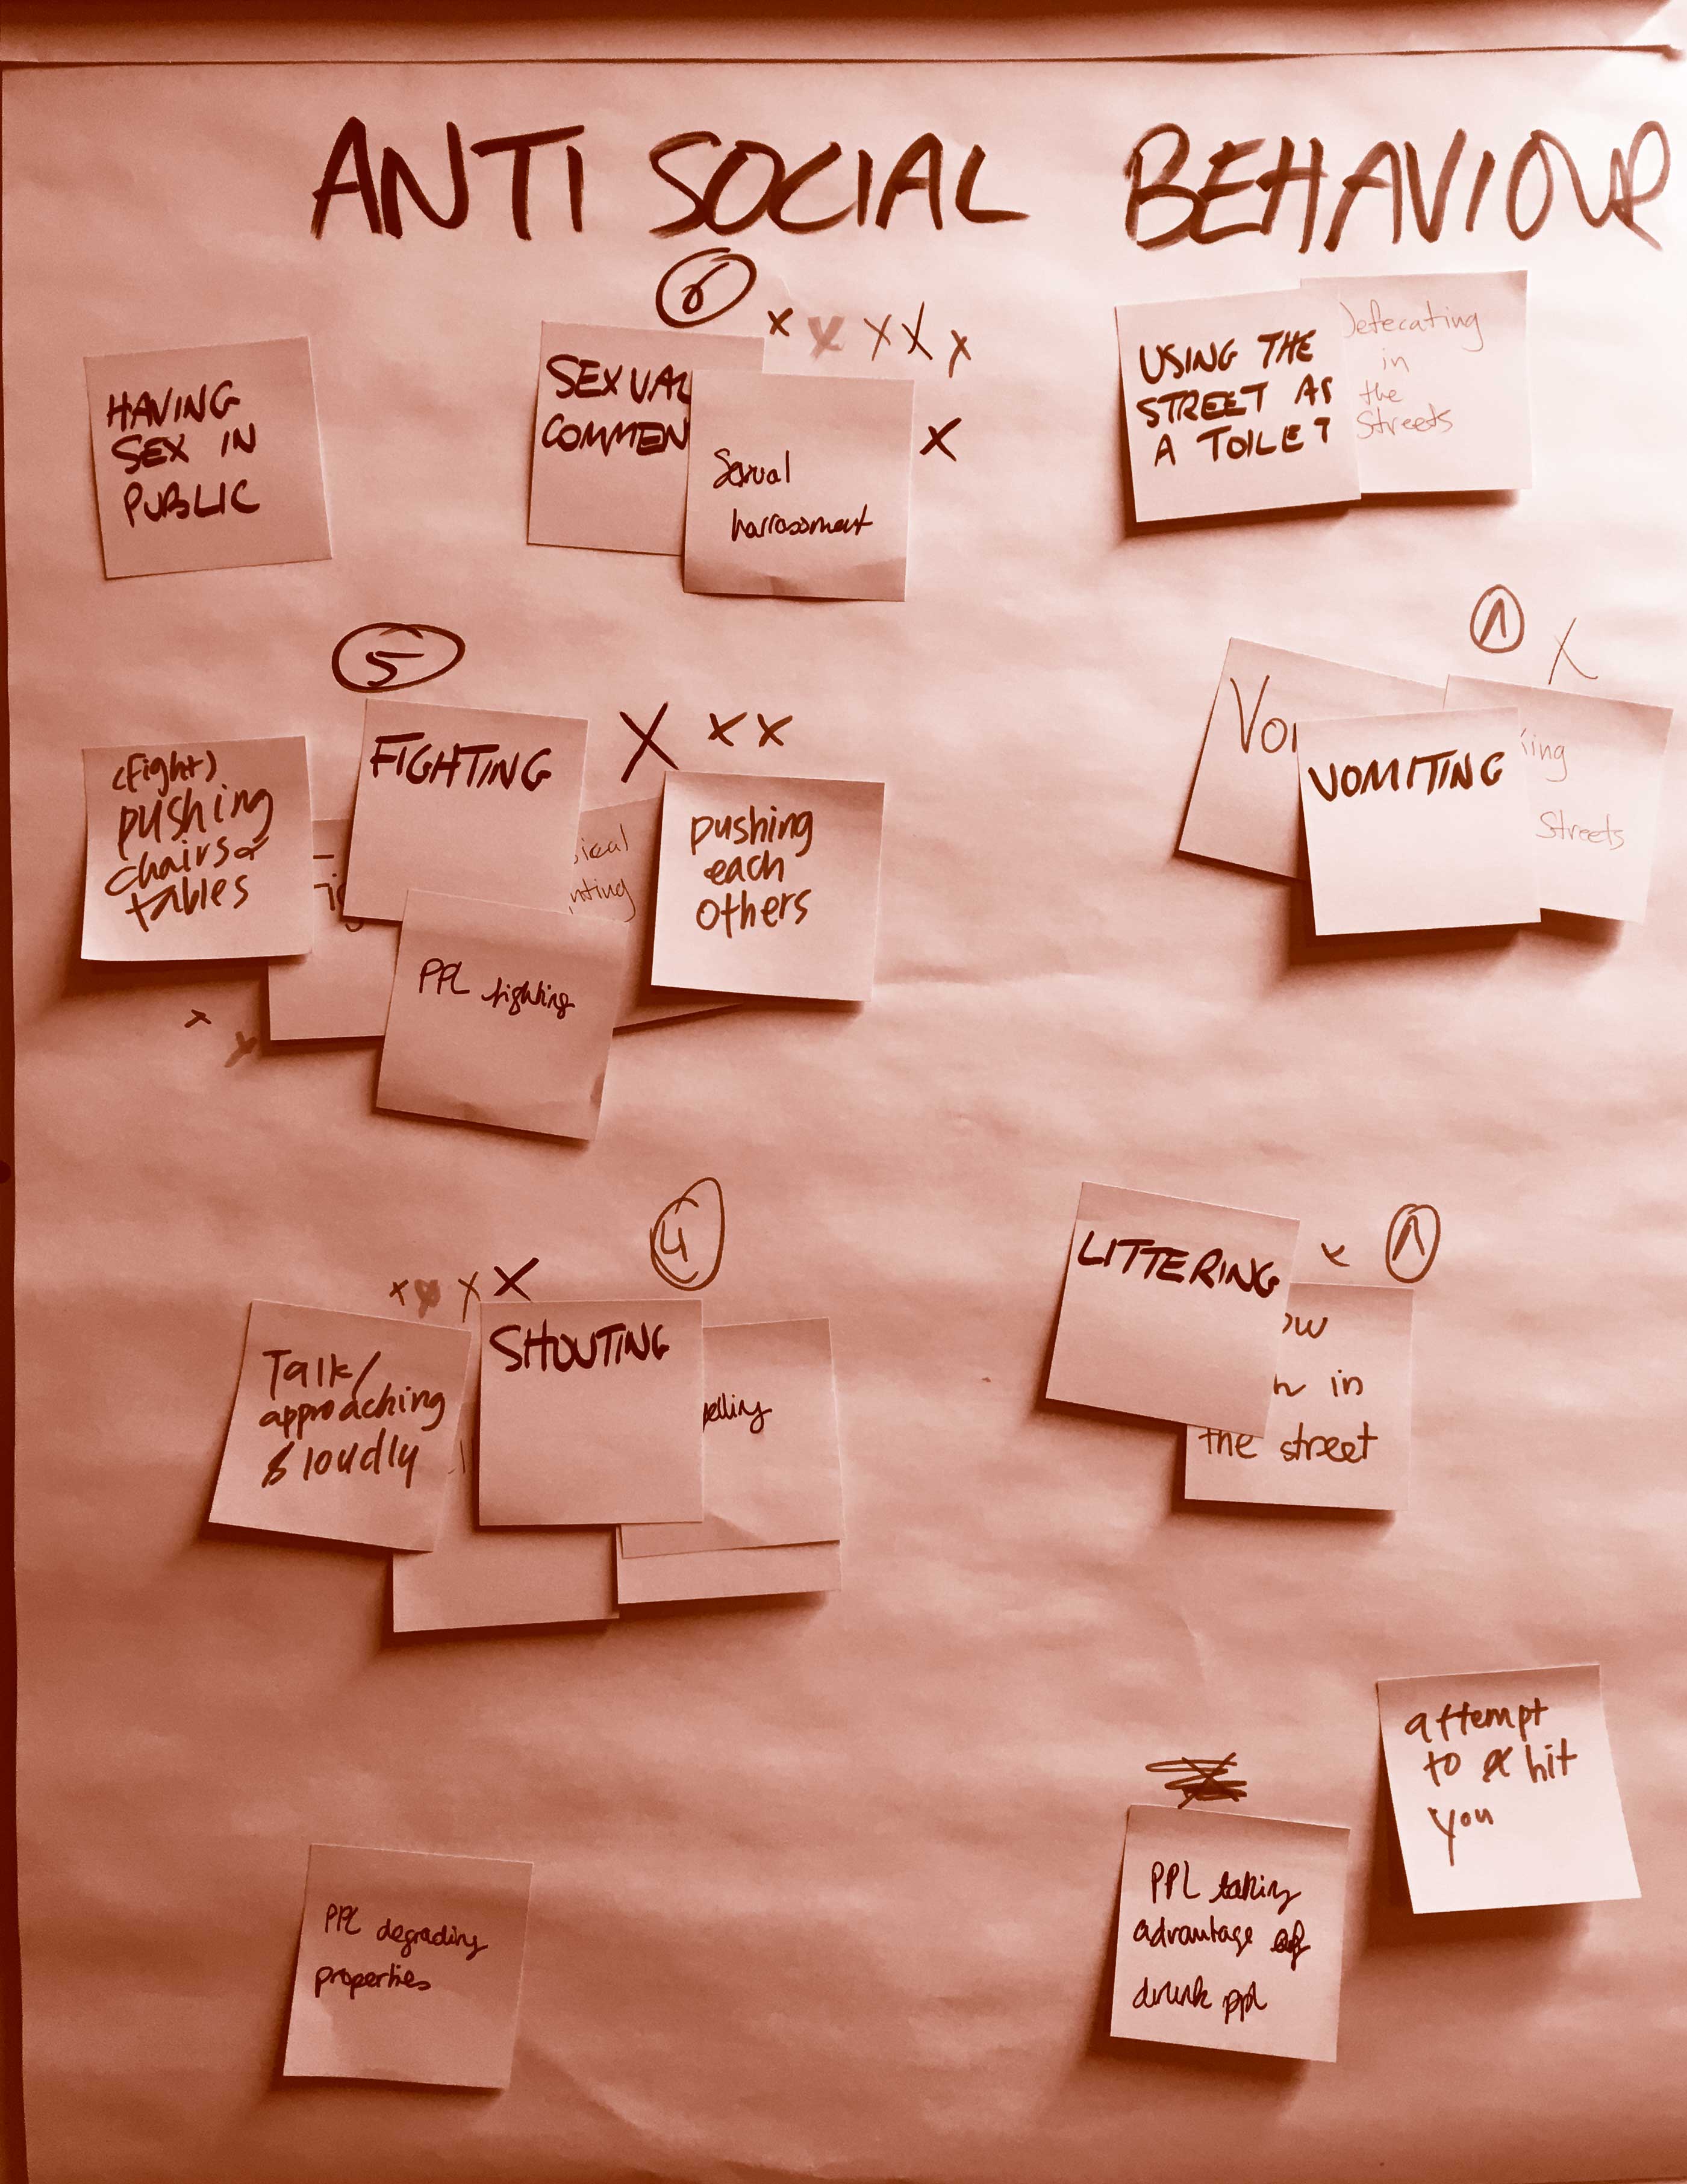 ANTI SOCIAL BEHAVIOUR
HAVING
SEX IN
PUBLIC
6
x x x x x
x
SEXUAL
COMMEN
Sexual
harrassment
USING THE
STREET AS
A TOILET
Defecating
in
the
Streets
5
X x x
(Fight)
pushing
chairs or
tables
FIGHTING
sical
hting
PPL fighting
pushing
each
others
x
x
1
X
Vo
VOMITING
ting
Streets
4
x x x x
Talk/
approaching
loudly
SHOUTING
elling
LITTERING
x
1
ow
in
the street
attempt
to hit
you
PPL taking
advantage of
drunk ppl
PPL degrading
properties